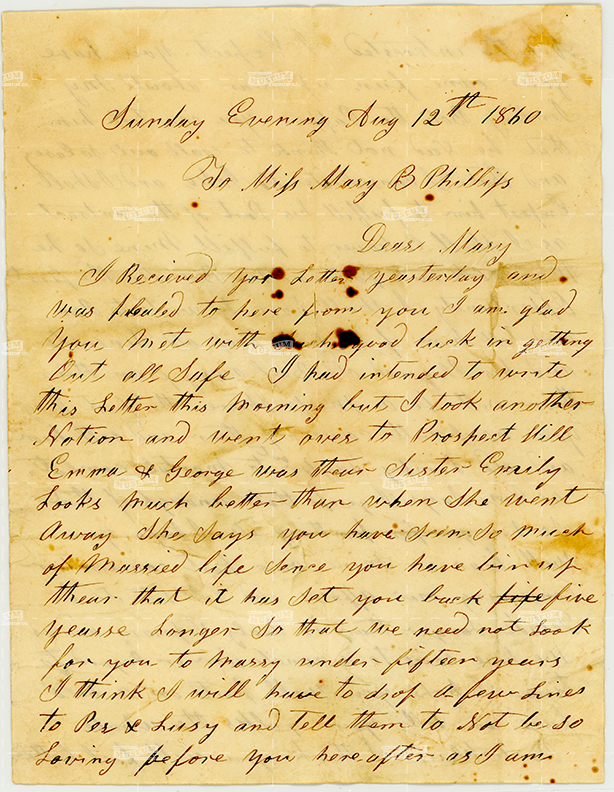 Sunday Evening Aug 12th 1860
To Miss Mary B Phillips
Dear Mary
I Recieved your Letter yeasterday and
was plealed to here from you I am glad
you Met with such good luck in getting
Out all Safe I had intended to write
this Letter this Morning but I took another
Notion and went over to Prospect Hill
Emma & George was thear Sister Emily
Looks Much better than when She went
Away She Says you have Seen So Much
of Married life Sence you have bin up
thear that it has Set you back fife five
yearse Longer So that we need not Look
for you to Marry under fifteen years
I think I will have to drop a few Lines
to Per & Lusy and tell them to Not be so
Loving before you hereafter as I am